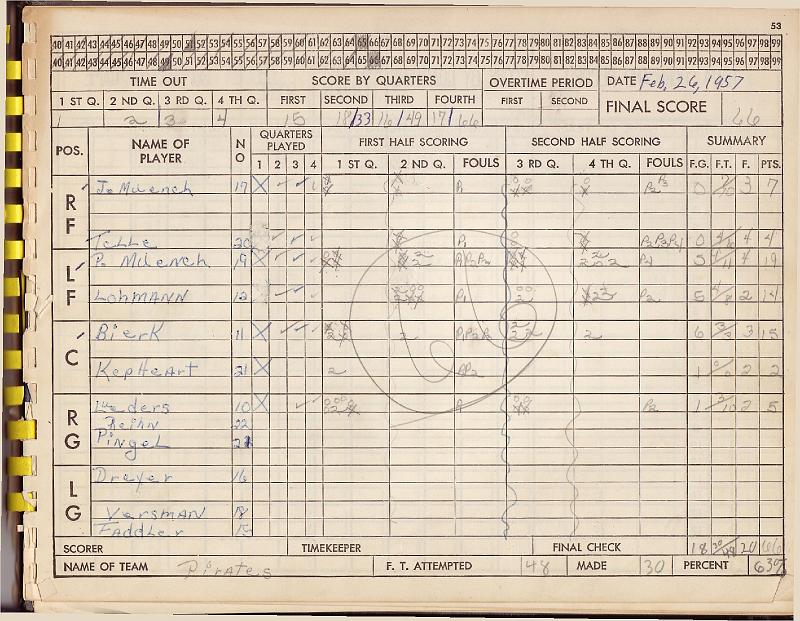 53
40 41 42 43 44 45 46 47 48 49 50 51 52 53 54 55 56 57 58 59 60 61 62 63 64 65 66 67 68 69 70 71 72 73 74 75 76 77 78 79 80 81 82 83 84 85 86 87 88 89 90 91 92 93 94 95 96 97 98 99
40 41 42 43 44 45 46 47 48 49 50 51 52 53 54 55 56 57 58 59 60 61 62 63 64 65 66 67 68 69 70 71 72 73 74 75 76 77 78 79 80 81 82 83 84 85 86 87 88 89 90 91 92 93 94 95 96 97 98 99
TIME OUT SCORE BY QUARTERS OVERTIME PERIOD DATE Feb. 26, 1957
1 ST Q. 2 ND Q. 3 RD Q. 4 TH Q. FIRST SECOND THIRD FOURTH FIRST SECOND FINAL SCORE 66
1 2 3 4 15 18/33 16/49 17/66
POS. NAME OF PLAYER NO QUARTERS PLAYED FIRST HALF SCORING SECOND HALF SCORING SUMMARY
1 2 3 4 1 ST Q. 2 ND Q. FOULS 3 RD Q. 4 TH Q. FOULS F.G. F.T. F. PTS.
RF J. Muench 17 P1 P2 P3 0 7/10 3 7
Tolle 20 P1 P2 P3 P4 0 4 4
LF P. Muench 19 P1 P2 P3 P4 5 4 19
Lohmann 12 P1 P2 5 4/8 2 14
C Bierk 11 2 P1 P2 P3 2 6 3/5 3 15
Kepheart 21 2 P1 P2 1 0/0 2 2
RG Lueders 10 P1 P2 1 3/10 2 5
Reihn 22
Pingel 21
LG Dreyer 16
Versman 18
Faddler 15
SCORER TIMEKEEPER FINAL CHECK 18 30/48 20 66
NAME OF TEAM Pirates F. T. ATTEMPTED 48 MADE 30 PERCENT 63%